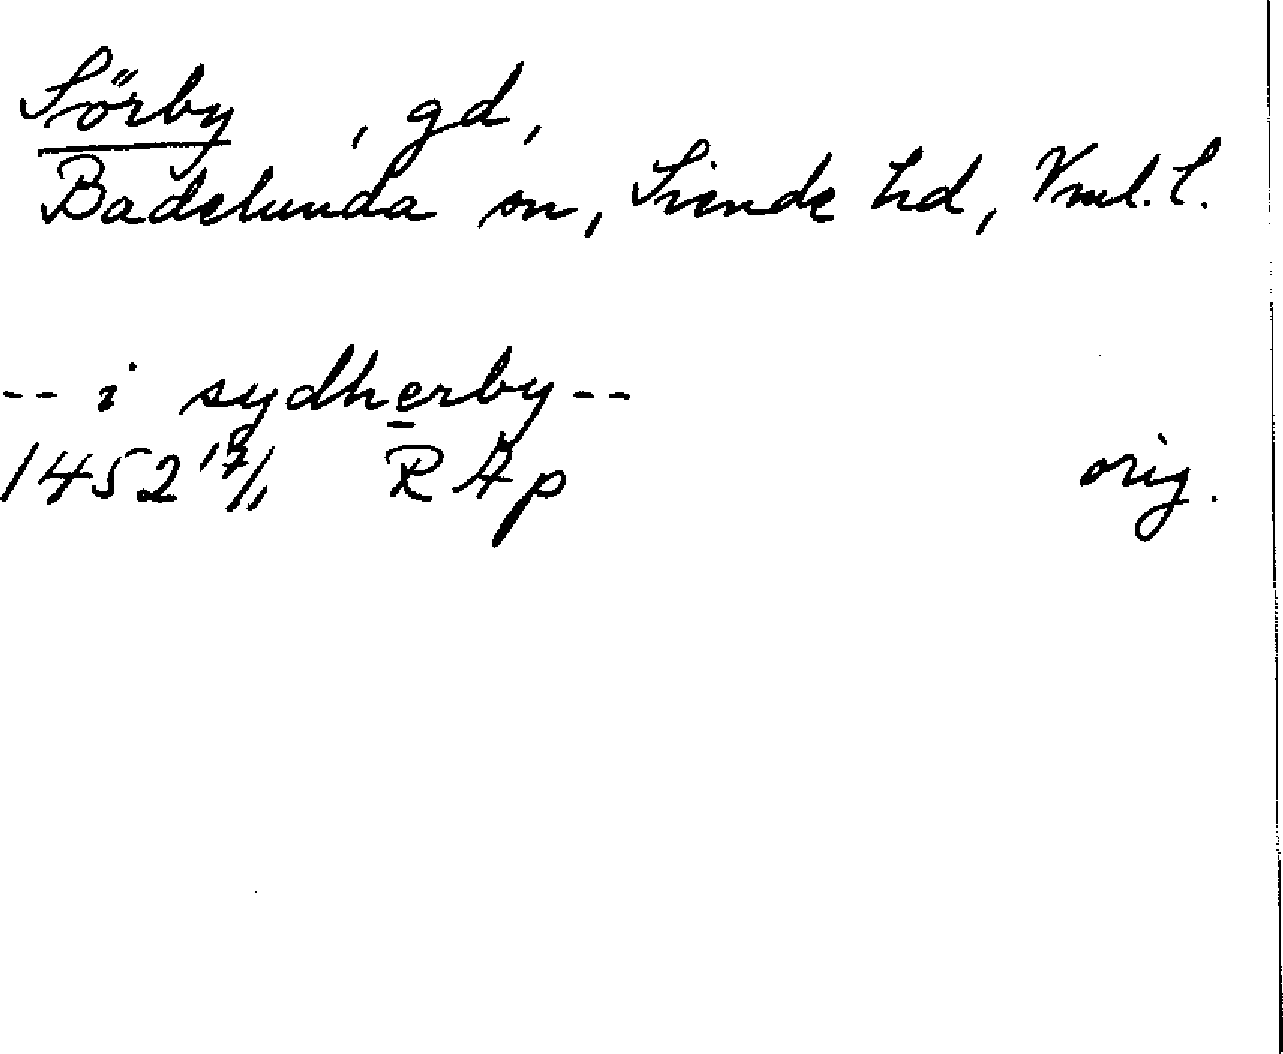 Sörby , gd,
Badelunda sn, Siende hd, Vml. l.
-- i sydherby --
1452 RAp orig.